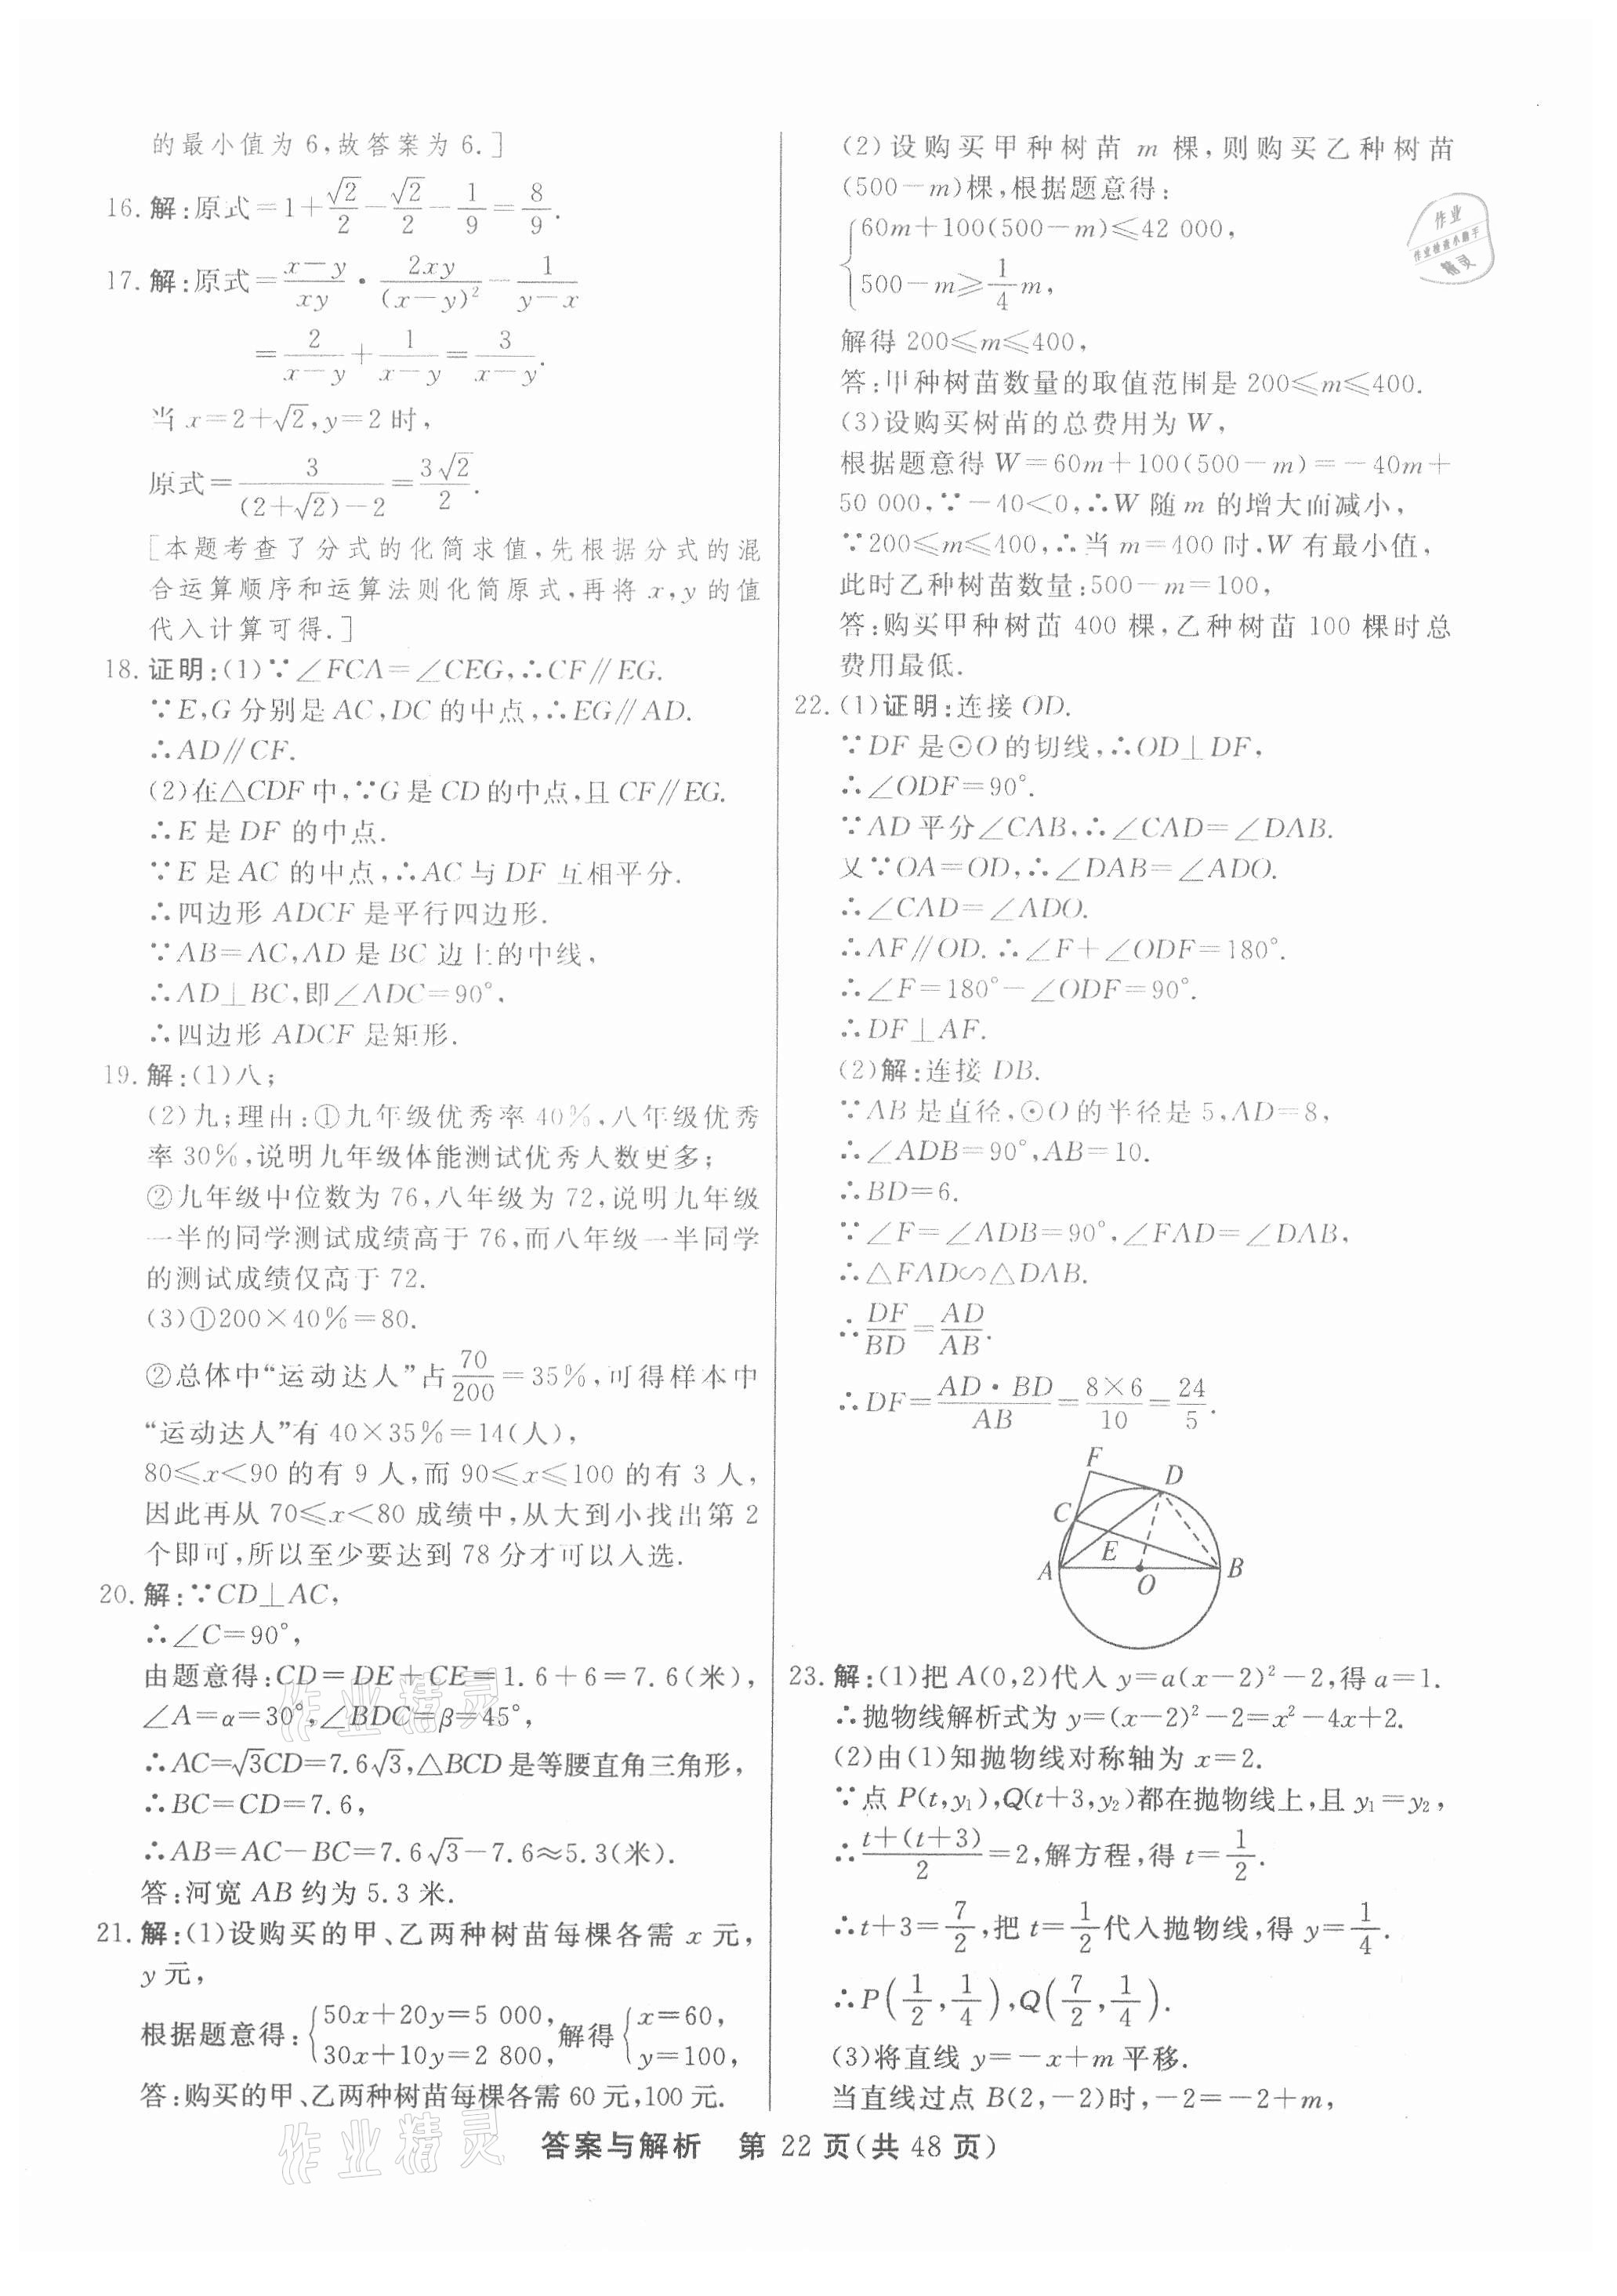 的最小值为 6,故答案为 6.]
16. 解:原式=1+√2/2-√2/2-1/9=8/9.
17. 解:原式=(x-y)/(xy)·2xy/(x-y)²-1/(y-x)
=2/(x-y)+1/(x-y)=3/(x-y).
当 x=2+√2,y=2 时,
原式=3/((2+√2)-2)=3√2/2.
[本题考查了分式的化简求值,先根据分式的混
合运算顺序和运算法则化简原式,再将 x,y 的值
代入计算可得.]
18. 证明:(1)∵∠FCA=∠CEG,∴CF∥EG.
∵E,G 分别是 AC,DC 的中点,∴EG∥AD.
∴AD∥CF.
(2)在△CDF 中,∵G 是 CD 的中点,且 CF∥EG.
∴E 是 DF 的中点.
∵E 是 AC 的中点,∴AC 与 DF 互相平分.
∴四边形 ADCF 是平行四边形.
∵AB=AC,AD 是 BC 边上的中线,
∴AD⊥BC,即∠ADC=90°,
∴四边形 ADCF 是矩形.
19. 解:(1)八;
(2)九;理由:①九年级优秀率 40%,八年级优秀
率 30%,说明九年级体能测试优秀人数更多;
②九年级中位数为 76,八年级为 72,说明九年级
一半的同学测试成绩高于 76,而八年级一半同学
的测试成绩仅高于 72.
(3)①200×40%=80.
②总体中“运动达人”占70/200=35%,可得样本中
“运动达人”有 40×35%=14(人),
80≤x<90 的有 9 人,而 90≤x≤100 的有 3 人,
因此再从 70≤x<80 成绩中,从大到小找出第 2
个即可,所以至少要达到 78 分才可以入选.
20. 解:∵CD⊥AC,
∴∠C=90°,
由题意得:CD=DE+CE=1.6+6=7.6(米),
∠A=α=30°,∠BDC=β=45°,
∴AC=√3CD=7.6√3,△BCD 是等腰直角三角形,
∴BC=CD=7.6,
∴AB=AC-BC=7.6√3-7.6≈5.3(米).
答:河宽 AB 约为 5.3 米.
21. 解:(1)设购买的甲、乙两种树苗每棵各需 x 元,
y 元,
根据题意得:{50x+20y=5 000, 30x+10y=2 800,解得{x=60, y=100,
答:购买的甲、乙两种树苗每棵各需 60 元,100 元.
(2)设购买甲种树苗 m 棵,则购买乙种树苗
(500-m)棵,根据题意得:
{60m+100(500-m)≤42 000,
500-m≥1/4m,
解得 200≤m≤400,
答:甲种树苗数量的取值范围是 200≤m≤400.
(3)设购买树苗的总费用为 W,
根据题意得 W=60m+100(500-m)=-40m+
50 000,∵-40<0,∴W 随 m 的增大而减小,
∵200≤m≤400,∴当 m=400 时,W 有最小值,
此时乙种树苗数量:500-m=100,
答:购买甲种树苗 400 棵,乙种树苗 100 棵时总
费用最低.
22. (1)证明:连接 OD.
∵DF 是⊙O 的切线,∴OD⊥DF,
∴∠ODF=90°.
∵AD 平分∠CAB,∴∠CAD=∠DAB.
又∵OA=OD,∴∠DAB=∠ADO.
∴∠CAD=∠ADO.
∴AF∥OD.∴∠F+∠ODF=180°.
∴∠F=180°-∠ODF=90°.
∴DF⊥AF.
(2)解:连接 DB.
∵AB 是直径,⊙O 的半径是 5,AD=8,
∴∠ADB=90°,AB=10.
∴BD=6.
∵∠F=∠ADB=90°,∠FAD=∠DAB,
∴△FAD∽△DAB.
∴DF/BD=AD/AB.
∴DF=AD·BD/AB=8×6/10=24/5.
F
D
C
E
A
B
O
23. 解:(1)把 A(0,2)代入 y=a(x-2)²-2,得 a=1.
∴抛物线解析式为 y=(x-2)²-2=x²-4x+2.
(2)由(1)知抛物线对称轴为 x=2.
∵点 P(t,y₁),Q(t+3,y₂)都在抛物线上,且 y₁=y₂,
∴(t+(t+3))/2=2,解方程,得 t=1/2.
∴t+3=7/2,把 t=1/2代入抛物线,得 y=1/4.
∴P(1/2,1/4),Q(7/2,1/4).
(3)将直线 y=-x+m 平移.
当直线过点 B(2,-2)时,-2=-2+m,
答案与解析 第 22 页(共 48 页)
作业
作业检查小助手
精灵
作业精灵
作业精灵